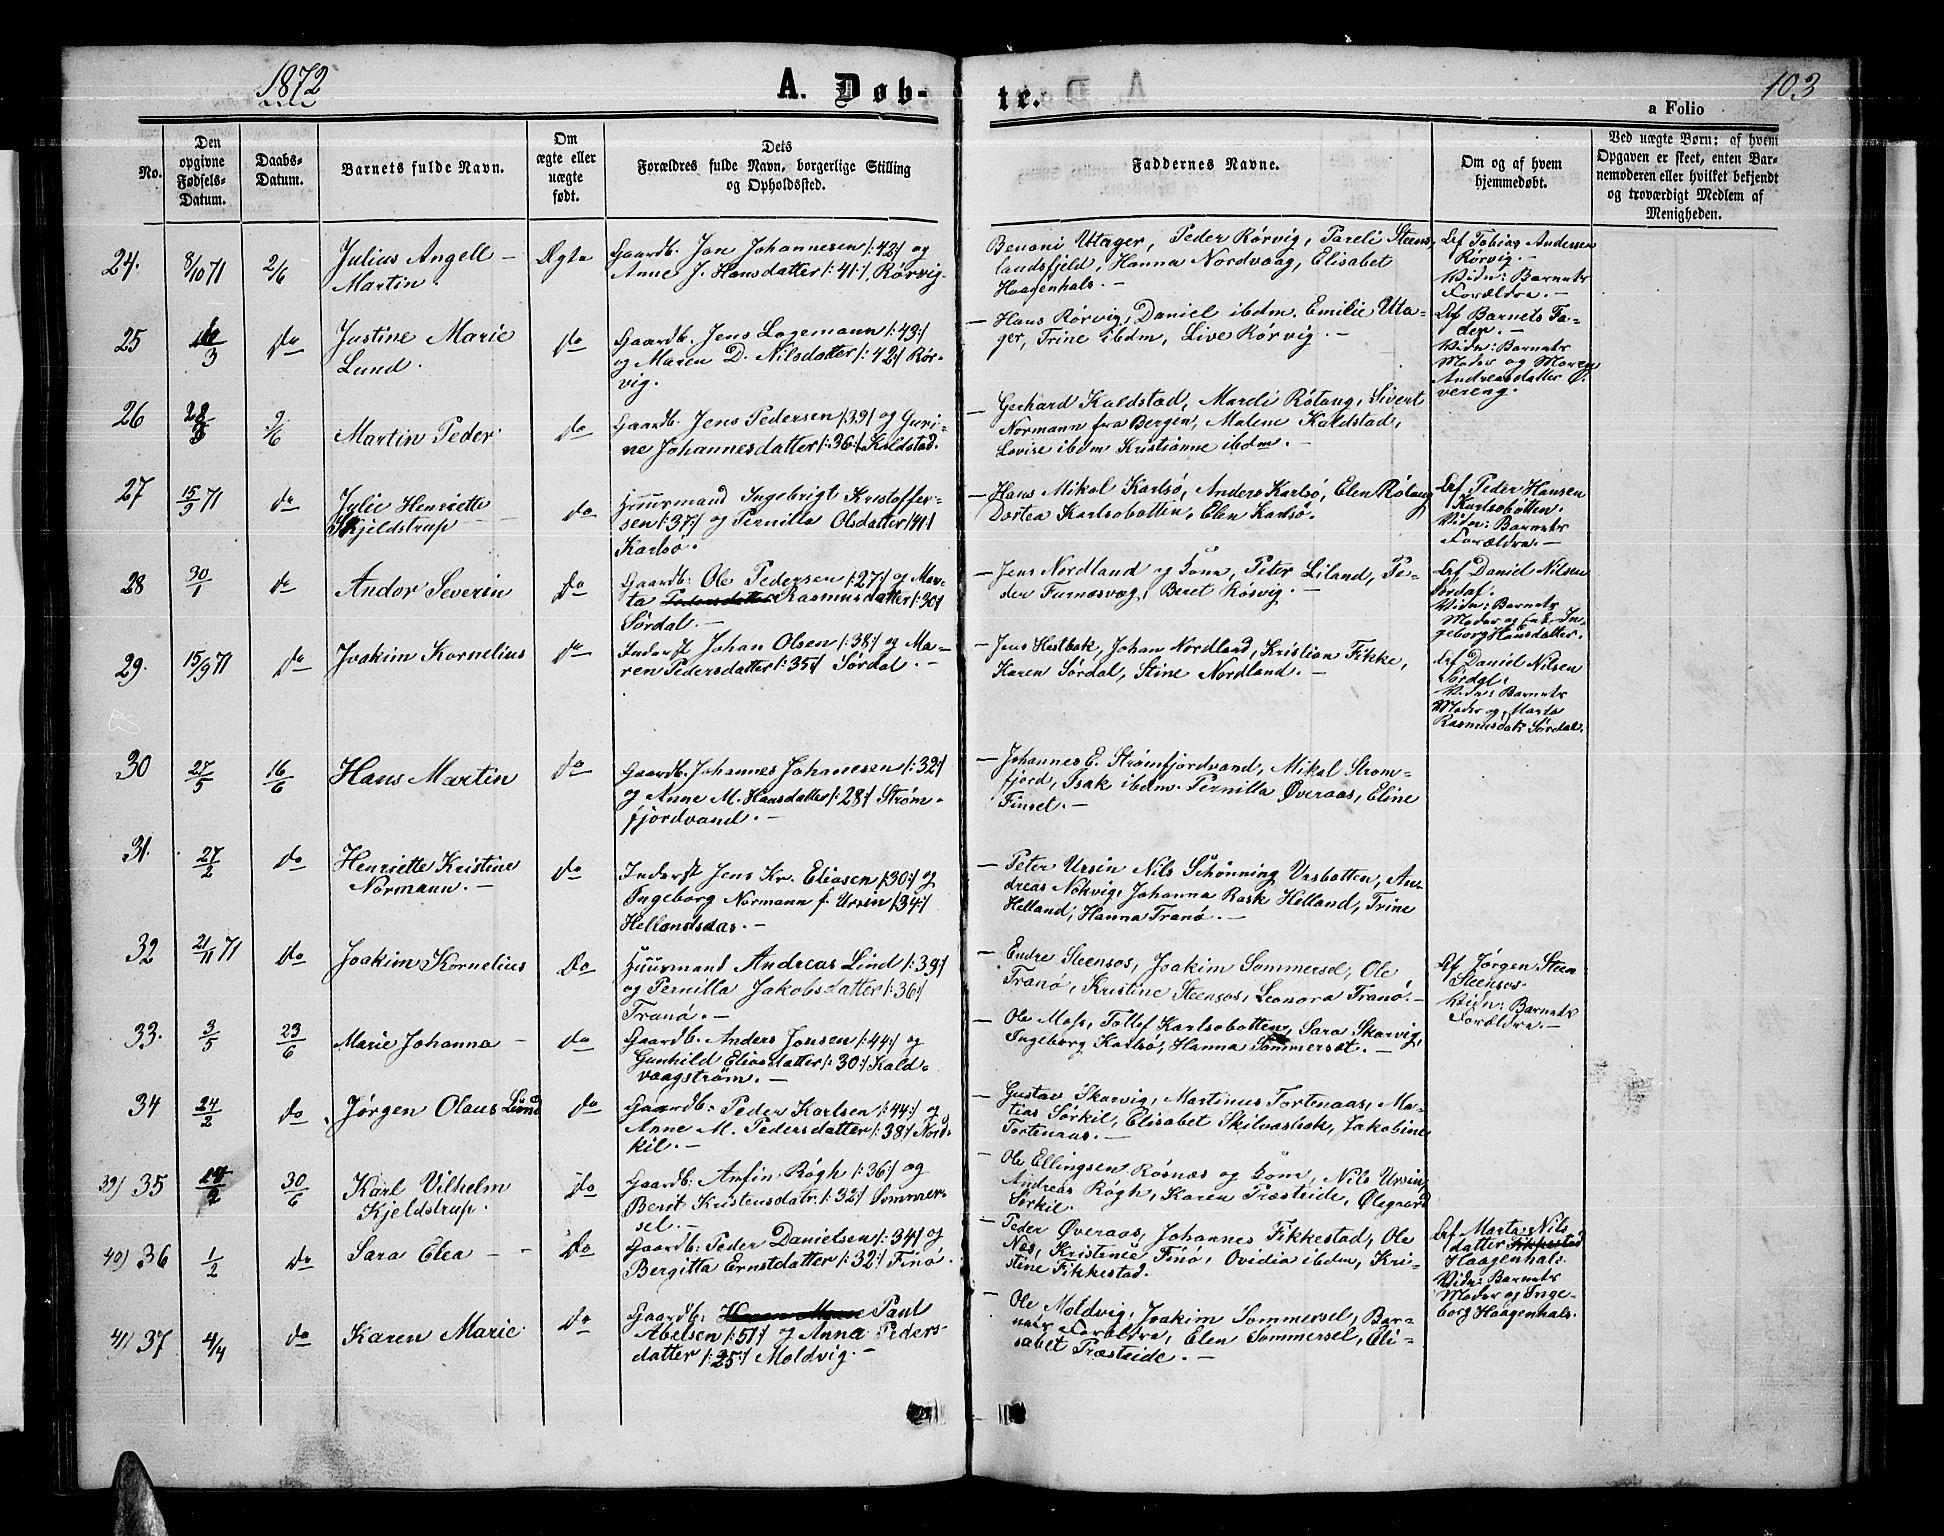 1872
A. Døb-
te.
103
a Folio
No.
Den
opgivne
Fødsels-
Datum.
Daabs-
Datum.
Barnets fulde Navn.
Om
ægte eller
uægte
født.
Dets
Forældres fulde Navn, borgerlige Stilling
og Opholdssted.
Faddernes Navne.
Om og af hvem
hjemmedøbt.
Ved uægte Børn: af hvem
Opgaven er skeet, enten Bar-
nemoderen eller hvilket bekjendt
og troværdigt Medlem af
Menigheden.
24. 8/10 71 2/6 Julius Angell –
Martin.
Ægte
Gaardb. Jon Johannesen /:42:/ og
Anne J. Hansdatter /:41:/, Rørvig.
Benoni Utager, Peder Rørvig, Pareli Steens
landsfjeld, Hanna Nordvaag, Elisabet
Haagenhals. –
Af Tobias Andersen
Rørvig. –
Vidn: Barnets
Forældre. –
25 /3 do Justine Marie
Lund.
do
Gaardb. Jens Lagemann /:43:/
og Maren D. Nilsdatter /:42:/ Rør-
vig.
– Hans Rørvig, Daniel ibdm. Emilie Uta-
ger, Trine ibdm, Live Rørvig. –
Af Barnets Fa-
der. –
Vidn: Barnets
Moder og Maren
Andreasdatter Ø.
vereng.
26 28/3 2/6 Martin Peder
do
Gaardb. Jens Pedersen /:39/ og Guri-
ne Johannesdatter /:36:/ Kaldstad.
– Gerhard Kaldstad, Mareli Røtang, Sivert
Normann fra Bergen, Malene Kaldstad,
Lovise ibdm Kristianne ibdm. –
27 15/9 71 do Julie Henriette
Kjeldstrup –
do
Huusmand Ingebrigt Kristoffer-
sen /:37:/ og Pernilla Olsdatter /41:/
Karlsø.
– Hans Mikal Karlsø, Anders Karlsø, Elen Røtang
Dortea Karlsobotten, Elen Karlsø.
Af Peder Hansen
Karlsobotten.
Vidn: Barnets
Forældre. –
28 30/1 do Andor Severin
do
Gaardb: Ole Pedersen /:27:/ og Mar-
ta Pedersdatter Rasmusdatter /:30:/
Sørdal. –
– Jens Nordland og Kona, Peter Liland, Pe-
der Furnesvag, Beret Rørvig. –
Af Daniel Nilsen
Sørdal.
Vidn: Barnets
Moder og Enke In-
geborg Hansdatter.
29. 15/9 71 do Joakim Kornelius
do
Inderst Johan Olsen /:38:/ og Ma-
ren Pedersdatter /:35:/ Sørdal. –
– Jens Hestbak, Johan Nordland, Kristian Fikke,
Karen Sørdal, Stine Nordland. –
Af Daniel Nilsen
Sørdal.
Vidn: Barnets
Moder og Marta
Rasmusdatr Sørdal.
30 27/5 16/6 Hans Martin
do
Gaardb. Johannes Johanesen /:32:/
og Anne M. Hansdatter /:28:/ Strøm-
fjordvand. –
– Johannes E. Strømfjordvand, Mikal Strøm-
fjord, Isak ibdm. Pernilla Øveraas, Eline
Finset. –
31. 27/2 do Henriette Kristine
Normann. –
do
Inderst Jens Kr. Eliasen /:30:/ og
Ingeborg Normann f. Ursin /34:/
Hellandsaas. –
– Peter Ursin Nils Schønning Vasbotten, An-
dreas Nøkvig, Johanna Rask Helland, Trine
Helland, Hanna Tranø. –
32 21/11 71 do Joakim Kornelius
do
Huusmand Andreas Lind /:39:/
og Pernilla Jakobsdatter /:36:/
Tranø. –
– Endre Steensos, Joakim Sommersel, Ole
Tranø, Kristine Steensos, Leonora Tranø. –
Af Jørgen Steen
Steensos
Vidn: Barnets
Forældre. –
33. 3/5 23/6 Marie Johanna –
do
Gaardb. Anders Jonsen /:44:/ og
Gunhild Eliasdatter /:30:/ Kald-
vaagstrøm. –
– Ole Moss, Tollef Karlsobotten, Sara Skarvig,
Ingeborg Karlsø, Hanna Sommerset. –
34 24/2 do Jørgen Olaus Lund
do
Gaardb: Peder Karlsen /:44:/ og
Anne M. Pedersdatter /:38:/ Nord-
kil. –
– Gustav Skarvig, Martinus Tortenaas, Ma-
tias Sørkil, Elisabet Skilvasbak, Jakobine
Tortenaas. –
39) 35 14/2 30/6 Karl Vilhelm
Kjeldstrup.
do
Gaardb: Anfin Røgh /:36:/ og
Berit Kristensdatr. /:32:/ Sommer-
sel. –
– Ole Ellingsen Røsnæs og Kona, Nils Ursin,
Andreas Røgh, Karen Træsteide, Olegaard
Sørkil.
40) 36 1/2 do Sara Elea –
do
Gaardb: Peder Danielsen /:34:/ og
Bergitta Ernstdatter /:32:/ Finø.
– Peder Øveraas, Johannes Fikkestad, Ole
Nes, Kristenie Finø, Ovidia ibdm, Kri-
stine Fikkestad.
Af Marta Nils
datter Fikkestad
Haagenhals.
Vidn: Barnets
Moder og Inge-
borg Haagenhals.
41) 37 4/4 do Karen Marie
do
Gaardb: Karen Marie Paul
Abelsen /:51:/ og Anna Peders-
datter /:25:/ Moldvig. –
– Ole Moldvig, Joakim Sommersel, Bar-
nets Forældre, Elen Sommersel, Eli-
sabet Træsteide. –